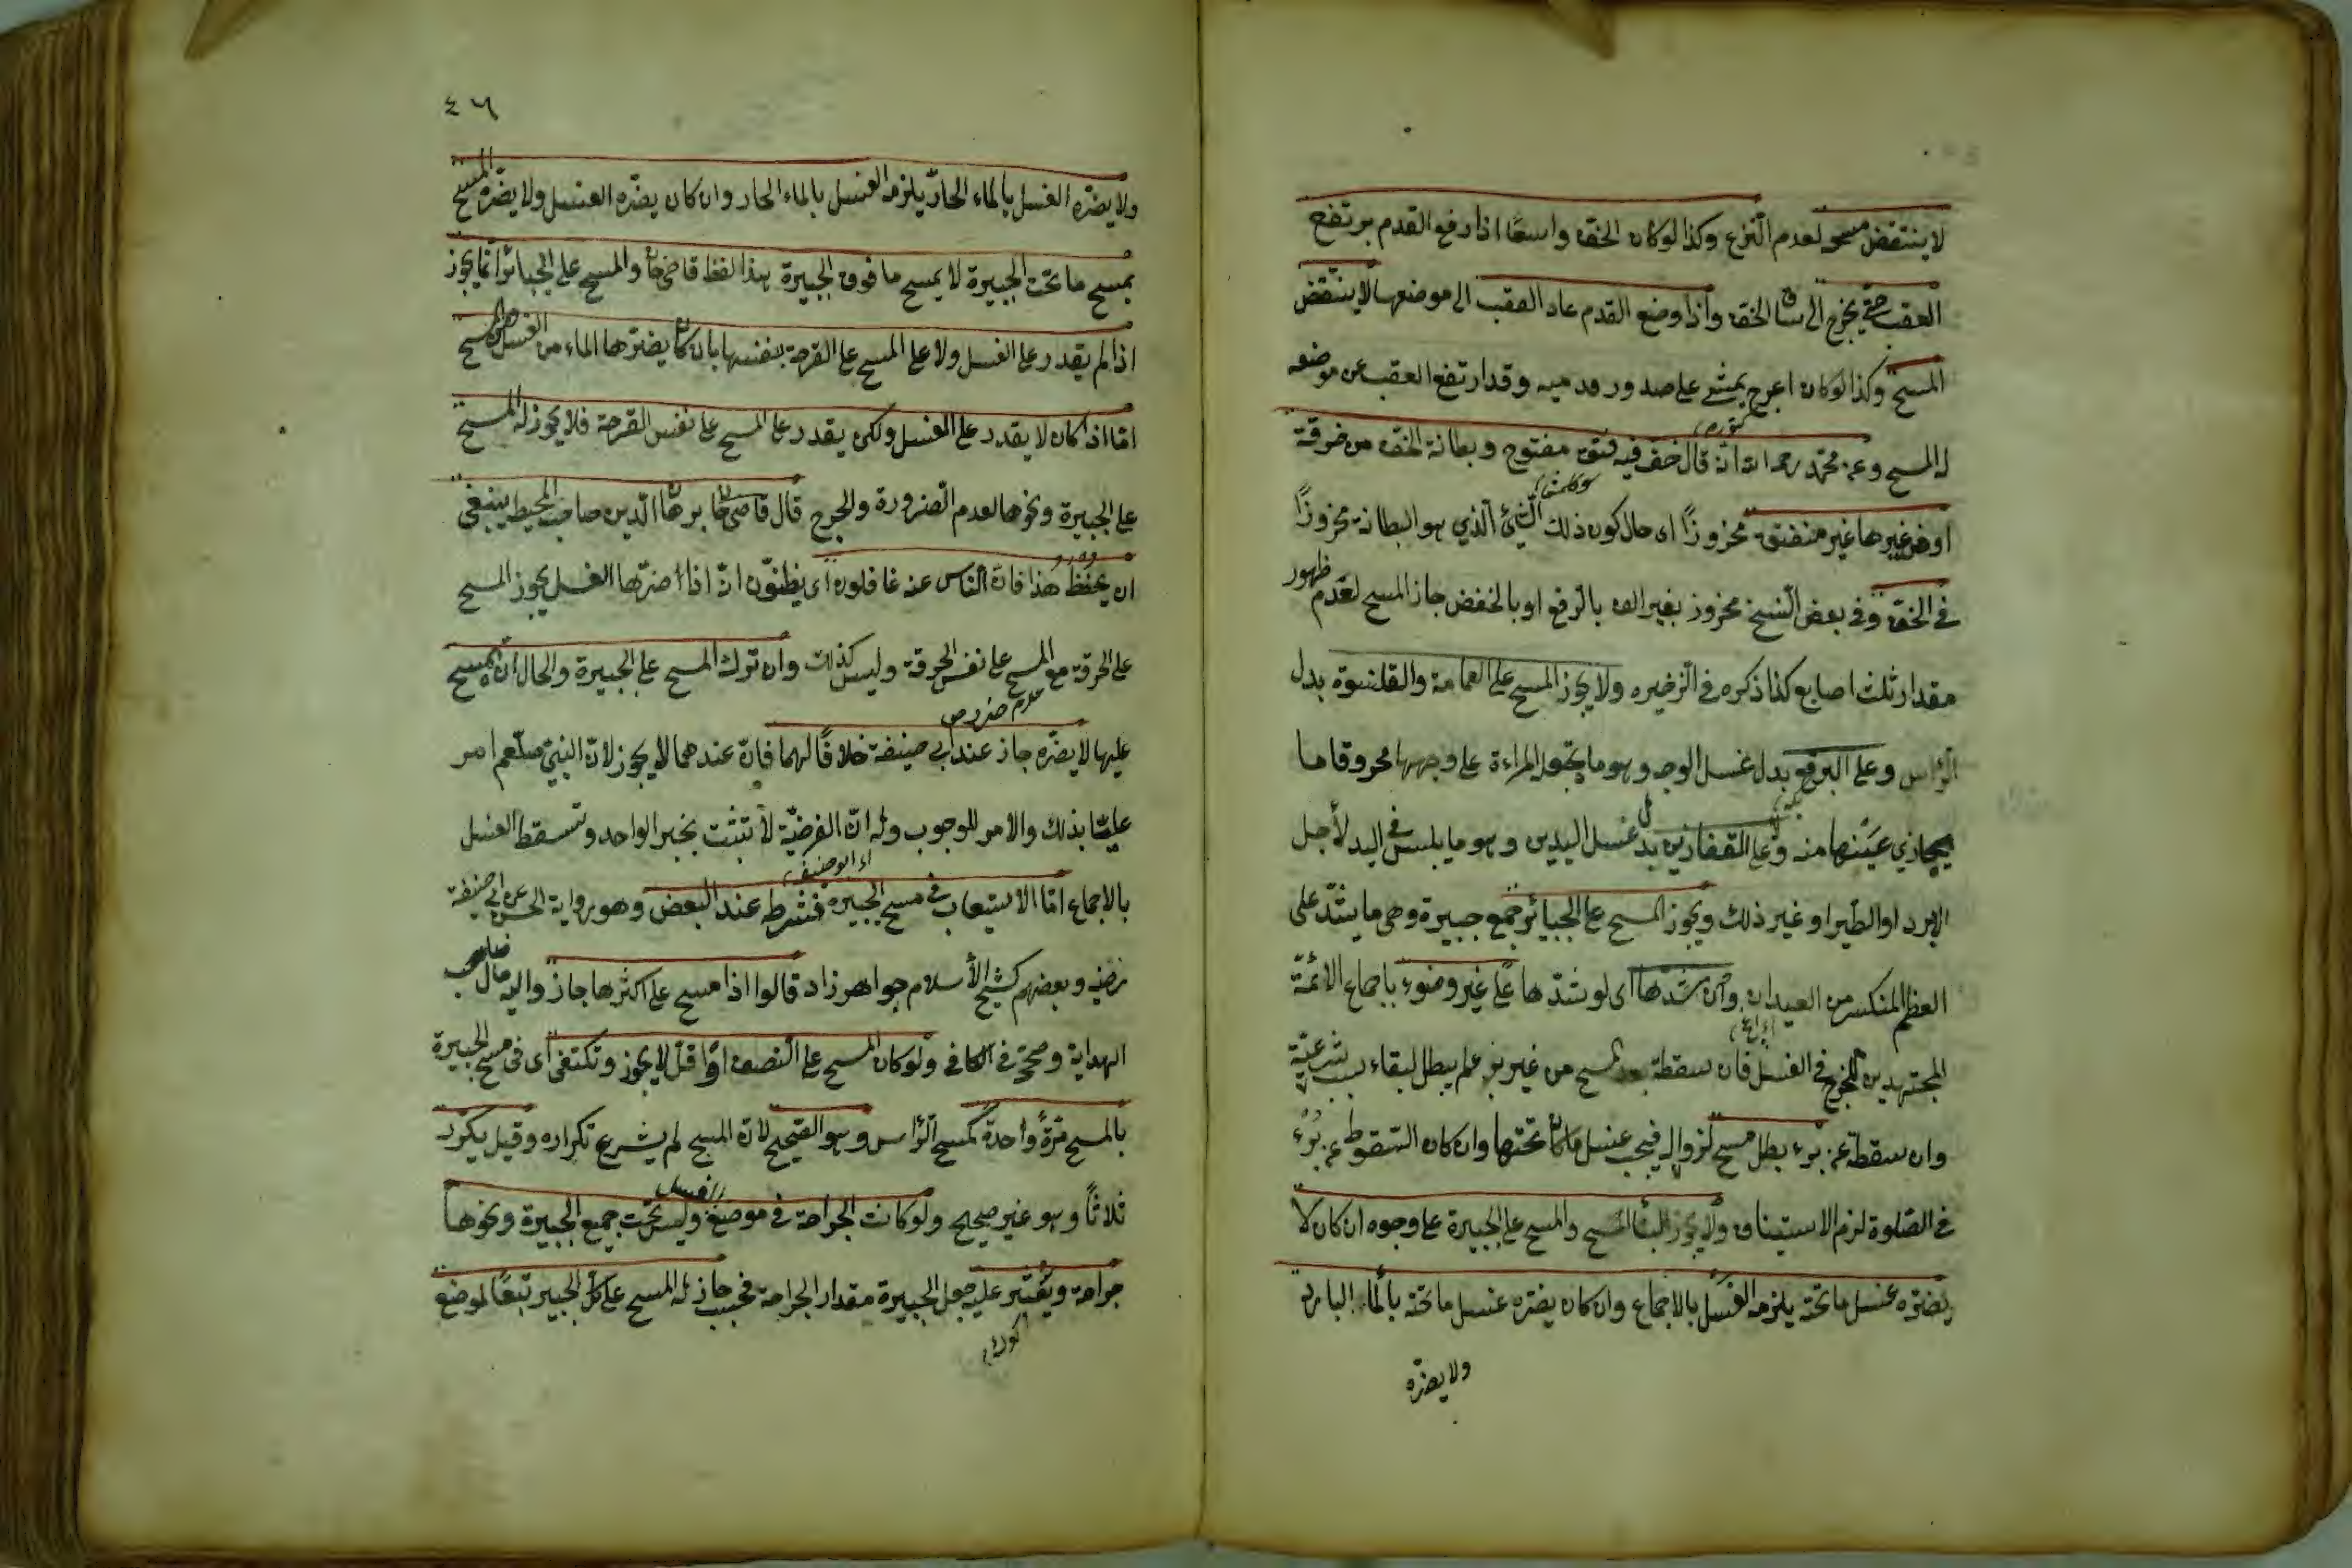 لا ينتقض مسحه لعدم النزع وكذا لو كان الخف واسعًا اذا رفع القدم يرتفع
العقب حتى يخرج الى ساق الخف واذا وضع القدم عاد العقب الى موضعها لا ينتقض
المسح وكذا لو كان اعرج يمشى على صدور قدميه وقد ارتفع العقب عن موضعه
له المسح وعن محمد رحمه الله انه قال خف فيه فتق مفتوح وبطانة الخف من خرقة
او من غيرها غير منفتق مخروزًا اى حال كون ذلك الشئ الذي هو البطانة مخروزًا
في الخف وفي بعض النسخ مخروز بغير الف بالرفع او بالخفض جاز المسح لعدم ظهور
مقدار ثلث اصابع كذا ذكره في الذخيره ولا يجوز المسح على العمامة والقلنسوة بدل
الرأس وعلى البرقع بدل غسل الوجه وهو ما يجعل المراءة على وجهها مخروقا ما
يحاذي عينها منه وعلى القفازين بدل غسل اليدين وهو ما يلبس في اليد لأجل
البرد او الطير او غير ذلك ويجوز المسح على الجبائر جمع جبيرة وهى ما يشدّ على
العظم المنكسر من العيدان وان شدّها اى لو شدّها على غير وضوء باجماع الائمّة
المجتهدين للحرج في الغسل فان سقطة بعد المسح من غير برء لم يبطل لبقاء سبب شرعيّة
وان سقطة عن برء بطل مسح لزواله فيجب غسل ما كان تحتها وان كان السقوط عن برء
في الصلوة لزم الاستيناف ولا يجوز المسح والمسح على الجبيرة على وجوه ان كان لا
يضرّه غسل ما تحته يلزمه الغسل بالاجماع وان كان يضرّه غسل ما تحته بالماء البارد
ولا يضرّه
٤٦
ولا يضرّه الغسل بالماء الحارّ يلزمه الغسل بالماء الحار وان كان يضرّه الغسل ولا يضرّه المسح
يمسح ما تحت الجبيرة لا يمسح ما فوق الجبيرة هذا لفظ قاضى خان والمسح على الجبائر انّما يجوز
اذا لم يقدر على الغسل ولا على المسح على القرحة بنفسها بان كان يضرّها الماء من الغسل والمسح
امّا اذا كان لا يقدر على الغسل ولكن يقدر على المسح على نفس القرحة فلا يجوز له المسح
على الجبيرة ونحوها لعدم الضرورة والحرج قال قاضى خان برهان الدين صاحب المحيط ينبغى
ان يحفظ هذا فانّ الناس عنه غافلون اى يظنّون انّ اذا اضرّها الغسل يجوز المسح
على الخرقة مع المسح على نفس الحرقة وليس كذلك وان ترك المسح على الجبيرة والحال ان يمسح
عليها لا يضرّه جاز عند ابى حنيفة خلافًا لهما فانّ عندهما لا يجوز لانّ النبىّ صلعم امر
عليّا بذلك والامر للوجوب وله انّ الفرضيّة لا تثبت بخبر الواحد وتسقط الغسل
اى ابو حنيفه
بالاجماع امّا الاستيعاب في مسح الجبيرة فشرط عند البعض وهو رواية الحسن عن ابى حنيفة
رضيه وبعضهم كشيخ الأسلام جواهر زاد قالوا اذا مسح على اكثرها جاز واليه مال صاحب
الهداية وصححه في الكافى ولو كان المسح على النصف او اقلّ لا يجوز وتكتفى اى في مسح الجبيرة
بالمسح مرّةً واحدةً كمسح الرأس وهو الصّحيح لانّ المسح لم يشرع تكراره وقيل يكرّر
ثلاثًا وهو غير صحيح ولو كانت الجراحة في موضع الغسل وليس تحت جميع الجبيرة ونحوها
جراحة ويعسر عليه جعل الجبيرة مقدار الجراحة فحسب جاز له المسح على كل الجبيرة تبعًا لموضع